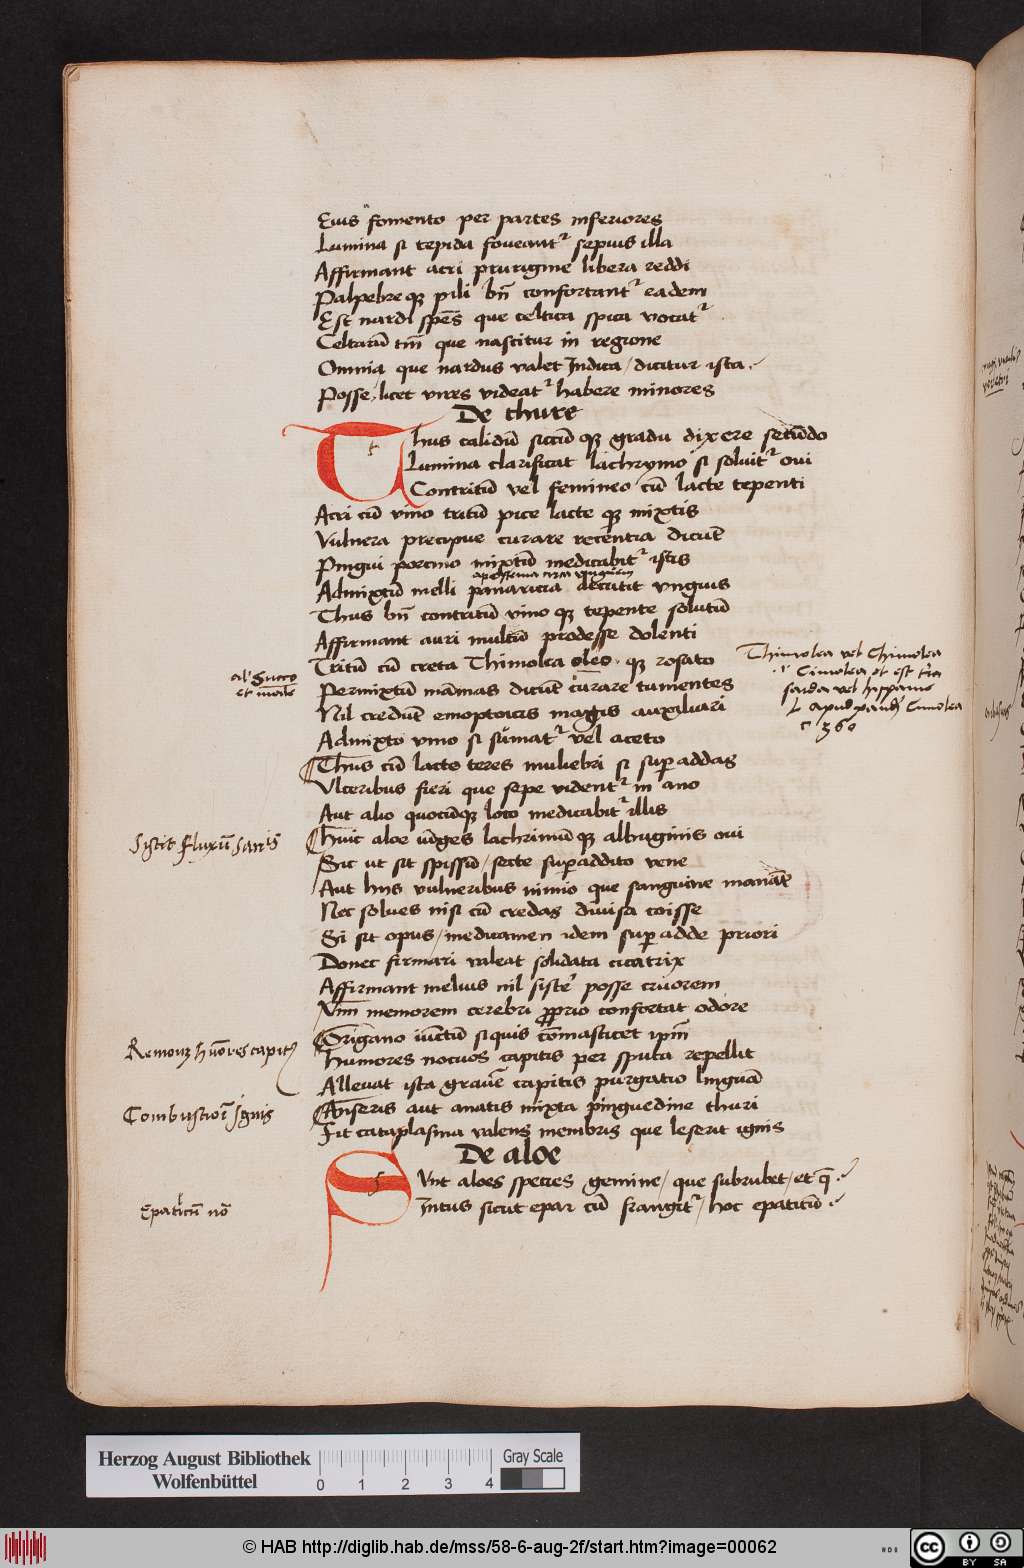 Eius fomento per partes inferiores
Lumina si tepida foveantr sepius illa
Affirmant acri prurigine libera reddi
Palpebreq; pili bn̄ confortantr eadem
Est nardi spēs que celtica spica vocatr
Celtarū tm̄ que nascitur in regione
Omnia que nardus valet Indica / dicitur ista
Posse / licet vires videatr habere minores
De thure
Thus calidū siccū q; gradu dixere secūdo
Lumina clarificat lachrymo si solvitr oui
Contritū vel femineo cū lacte tepenti
Acri cū vino tritū pice lacte q; mixtis
Vulnera precipue curare recentia dicūt
Pingui porcino mixtū medicabitr istis
Admixtū melli panaricia decutit vnguis
Thus bn̄ contritū vino q; tepente solutū
Affirmant auri multū prodesse dolenti
Tritū cū creta Thimolea oleo q; rosato
Permixtū māmas dicūt curare tumentes
Nil credūt emoptoicis magis auxiliari
Admixto vino si sūmatr vel aceto
Thus cū lacto teres muliebri si superaddas
Vlceribus fieri que sepe videntr in ano
Aut alio quocūq; loco medicabitr illis
Huic aloe iūges lachrimūq; albuginis oui
Sic ut sit spissū / secte superaddito vene
Aut hiis vulneribus nimio que sanguine manāt
Nec solves nisi cū credas divisa coisse
Si sit opus / medicamen idem superadde priori
Donec firmari valeat solidata cicatrix
Affirmant melius nil sistere posse cruorem
Vim memorem cerebri proprio confortat odore
Origano iūctū siquis cōmasticet ipm̄
Humores nocuos capitis per sputa repellit
Allevat ista gravē capitis purgatio linguā
Anseris aut anatis mixta pinguedine thuri
Fit cataplasma valens membris que leserit ignis
De aloe
Sunt aloes species gemine / que subrubet / et q̄
Intus sicut epar cū frangitr / hoc epaticū
al' Succo
Thimolea vel Chimolea
Cimolea et est t'ra
sarda vel hispanie
Cimolea
360
Sistit fluxū san'is
Remouz hūores capit'
Combustior' ignis
Epaticū
Herzog August Bibliothek
Wolfenbüttel
0 1 2 3 4
Gray Scale
© HAB http://diglib.hab.de/mss/58-6-aug-2f/start.htm?image=00062
cc BY SA